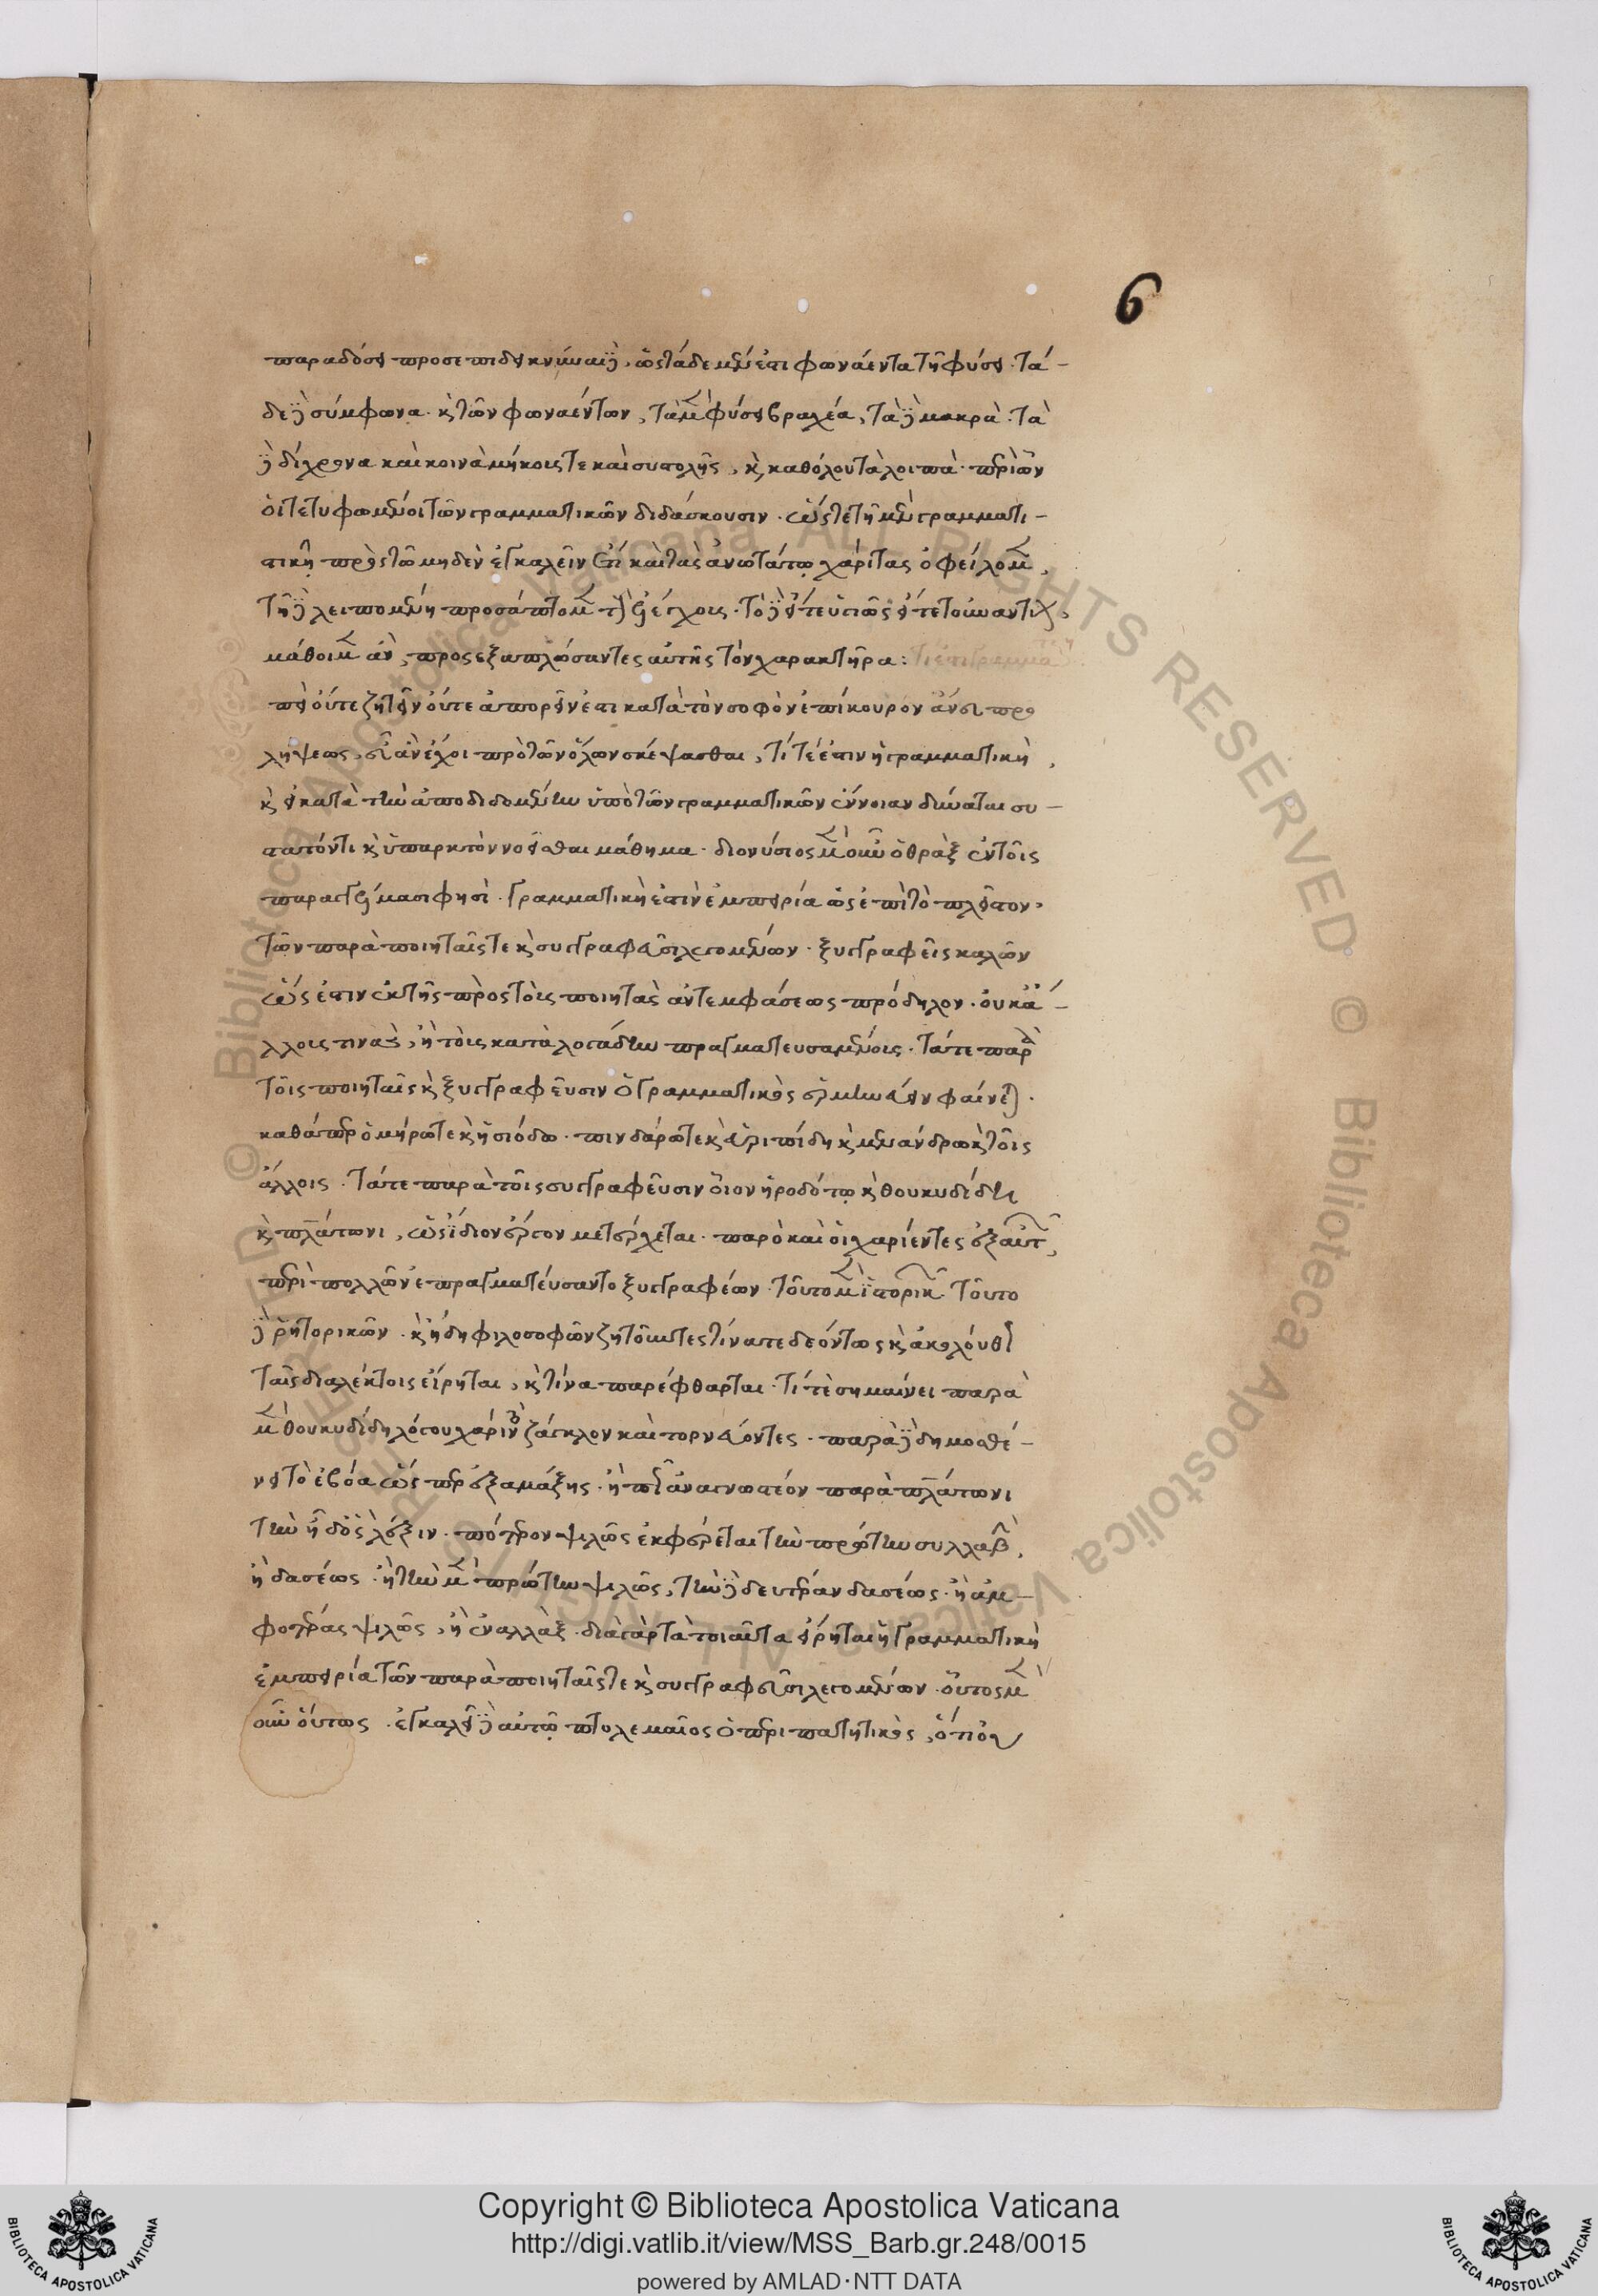 6
παραδόσει προσεπιδεικνύναι δὲ, ὡς τάδε μέν ἐστι φωνάεντα τῇ φύσει. τά-
δε δὲ σύμφωνα. καὶ τῶν φωναέντων, τὰ μὲν φύσει βραχέα, τὰ δὲ μακρὰ. τὰ
δὲ δίχρονα καὶ κοινὰ μήκους τε καὶ συστολῆς, καὶ καθόλου τὰ λοιπὰ. περὶ ὧν
οἱ τετυφωμένοι τῶν γραμματικῶν διδάσκουσιν. ὥστε τῇ μὲν γραμματι-
στικῇ πρὸς τῶ μηδὲν ἐγκαλεῖν ἔτι καὶ τὰς ἀνωτάτω χάριτας ὀφείλομεν,
τῇ δὲ λειπομένῃ προσάπτομεν τοὺς ἐλέγχους. τὸ δὲ εἴτε ὑγιῶς εἴτε τοὐναντίον,
μάθοιμεν ἂν, προσεξαπλώσαντες αὐτῆς τὸν χαρακτῆρα: Τί ἐστι γραμμα
πεὶ οὔτε ζητεῖν οὔτε ἀπορεῖν ἔστι κατὰ τὸν σοφὸν ἐπίκουρον ἄνευ προ
λήψεως, εὖ ἂν ἔχοι πρὸ τῶν ὅλων σκέψασθαι, τί τέ ἐστιν ἡ γραμματικὴ,
καὶ εἰ κατὰ τὴν ἀποδιδομένην ὑπὸ τῶν γραμματικῶν ἔννοιαν δύναται συ-
στατόν τι καὶ ὑπαρκτὸν νοεῖσθαι μάθημα. διονύσιος μὲν οὖν ὁ θρᾲξ ἐν τοῖς
παραγγέλμασι φησὶ. γραμματικὴ ἐστὶν ἐμπειρία ὡς ἐπὶ τὸ πλεῖστον,
τῶν παρὰ ποιηταῖς τε καὶ συγγραφεῦσι λεγομένων. ξυγγραφεῖς καλῶν
ὥς ἐστιν ἐκ τῆς πρὸς τοὺς ποιητὰς ἀντεμφάσεως πρόδηλον. οὐκ ἄ-
λλους τινὰς, ἢ τοὺς καταλογάδην πραγματευσαμένους. τά τε παρὰ
τοῖς ποιηταῖς καὶ ξυγγραφεῦσιν ὁ γραμματικὸς ἑρμηνεύειν φαίνεται.
καθάπερ ὁμήρω τε καὶ ἡσιόδω. πινδάρω τε καὶ εὐριπίδη καὶ μενάνδρω καὶ τοῖς
ἄλλοις. τά τε παρὰ τοῖς συγγραφεῦσιν οἷον ἡροδότῳ καὶ θουκυδίδη
καὶ πλάτωνι, ὡς ἴδιον ἔργον μετέρχεται. παρὸ καὶ οἱ χαρίεντες ἐξ αὐτῶν,
περὶ πολλῶν ἐπραγματεύσαντο ξυγγραφέων. τοῦτο μὲν ἱστορικῶν. τοῦτο
δὲ ῥητορικῶν. καὶ ἤδη φιλοσόφων ζητοῦντες τίνα τε δεόντως καὶ ἀκολούθως
ταῖς διαλέκτοις εἴρηται, καὶ τίνα παρέφθαρται. τί τὲ σημαίνει παρὰ
μὲν θουκυδίδη λόγου χάριν τὸ ζάγκλον καὶ τορνεύοντες. παρὰ δὲ δημοσθέ-
νει τὸ ἐβόα ὥσπερ ἐξ αμάξης. ἢ πῶς ἀναγνωστέον παρὰ πλάτωνι
τὴν ἦ δ' ὃς λέξιν. πότερον ψιλῶς ἐκφέρεται τὴν πρώτην συλλαβὴν,
ἢ δασέως. ἢ τὴν μὲν πρώτην ψιλῶς, τὴν δὲ δευτέραν δασέως. ἢ ἀμ-
φοτέρας ψιλῶς, ἢ ἐναλλὰξ. διὰ γὰρ τὰ τοιαῦτα εἴρηται ἡ γραμματικὴ
ἐμπειρία τῶν παρὰ ποιηταῖς τε καὶ συγγραφεῦσι λεγομένων. οὗτος μὲν
οὖν οὕτως. ἐγκαλεῖ δὲ αὐτῷ πτολεμαῖος ὁ περιπατητικὸς, ὅτι οὐκ
Copyright © Biblioteca Apostolica Vaticana
http://digi.vatlib.it/view/MSS_Barb.gr.248/0015
powered by AMLAD·NTT DATA